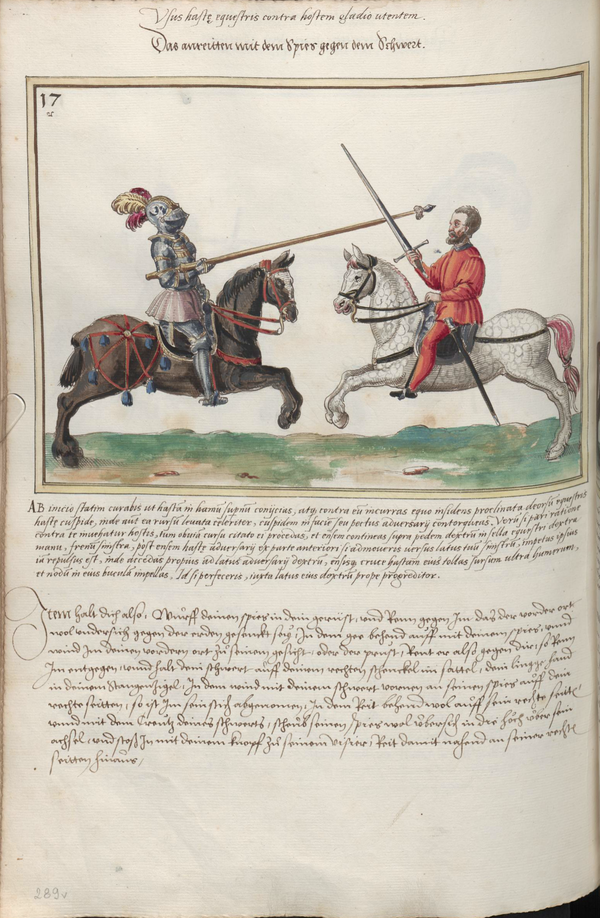 Usus hastę equestris contra hostem gladio utentem.
Das anreitten mit dem Spies gegen dem Schwert.
17
AB inicio statim curabis ut hastā in hamū supinū conijcias, atq; contra eū incurras equo insidens proclinata deorsū equestris
hastę cuspide, inde aūt ea rursū levata celeriter, cuspidem in faciē seu pectus adversarij contorqueas. Verū si pari ratione
contra te invehatur hostis, tum obviā cursu citato ei procedas, et ensem contineas supra pedem dextrū in sella equestri dextra
manu, frenū sinistra, post ensem hastę adversarij ex parte anteriori si admoveris versus latus tuū sinistrū, impetus ipsius
iā repulsus est, inde accedas propius ad latus adversarij dextrū, ensisq; cruce hastam eius tollas sursum ultra humerum,
et nodū in eius bucula impellas. Id si perfeceris, iuxta latus eius dextrū prope progreditor.
Item halt dich also, Würff deinen spies in dein gerüst, vnd Renn gegen Im das der vorder ort
wol vndersich gegen der erden gesenckt seÿ, In dem gee behend auff mit deinem spies, vnnd
wind Im deinen vordern ort zu seinem gesicht, oder der prust, Rent er also gegen dir, so Renn
Im entgegen, vnnd hab dein schwert auff deinem rechten schenckel im sattel, dein lingge hand
in deinem Stangenzigel, In dem wind mit deinem schwert vornen an seinen spies auff dein
rechte seitten, so ist Im sein stich abgenomen, In dem Reit behend wol auff sein rechte seitte
vnnd mit dem Creutz deines schwerts, scheub seinen spies wol übersich in die höch über sein
achsel, vnd stos In mit deinem knopff zu seinem Visier, Reit damit nahend an seiner rechte
seitten hinaus,
289v